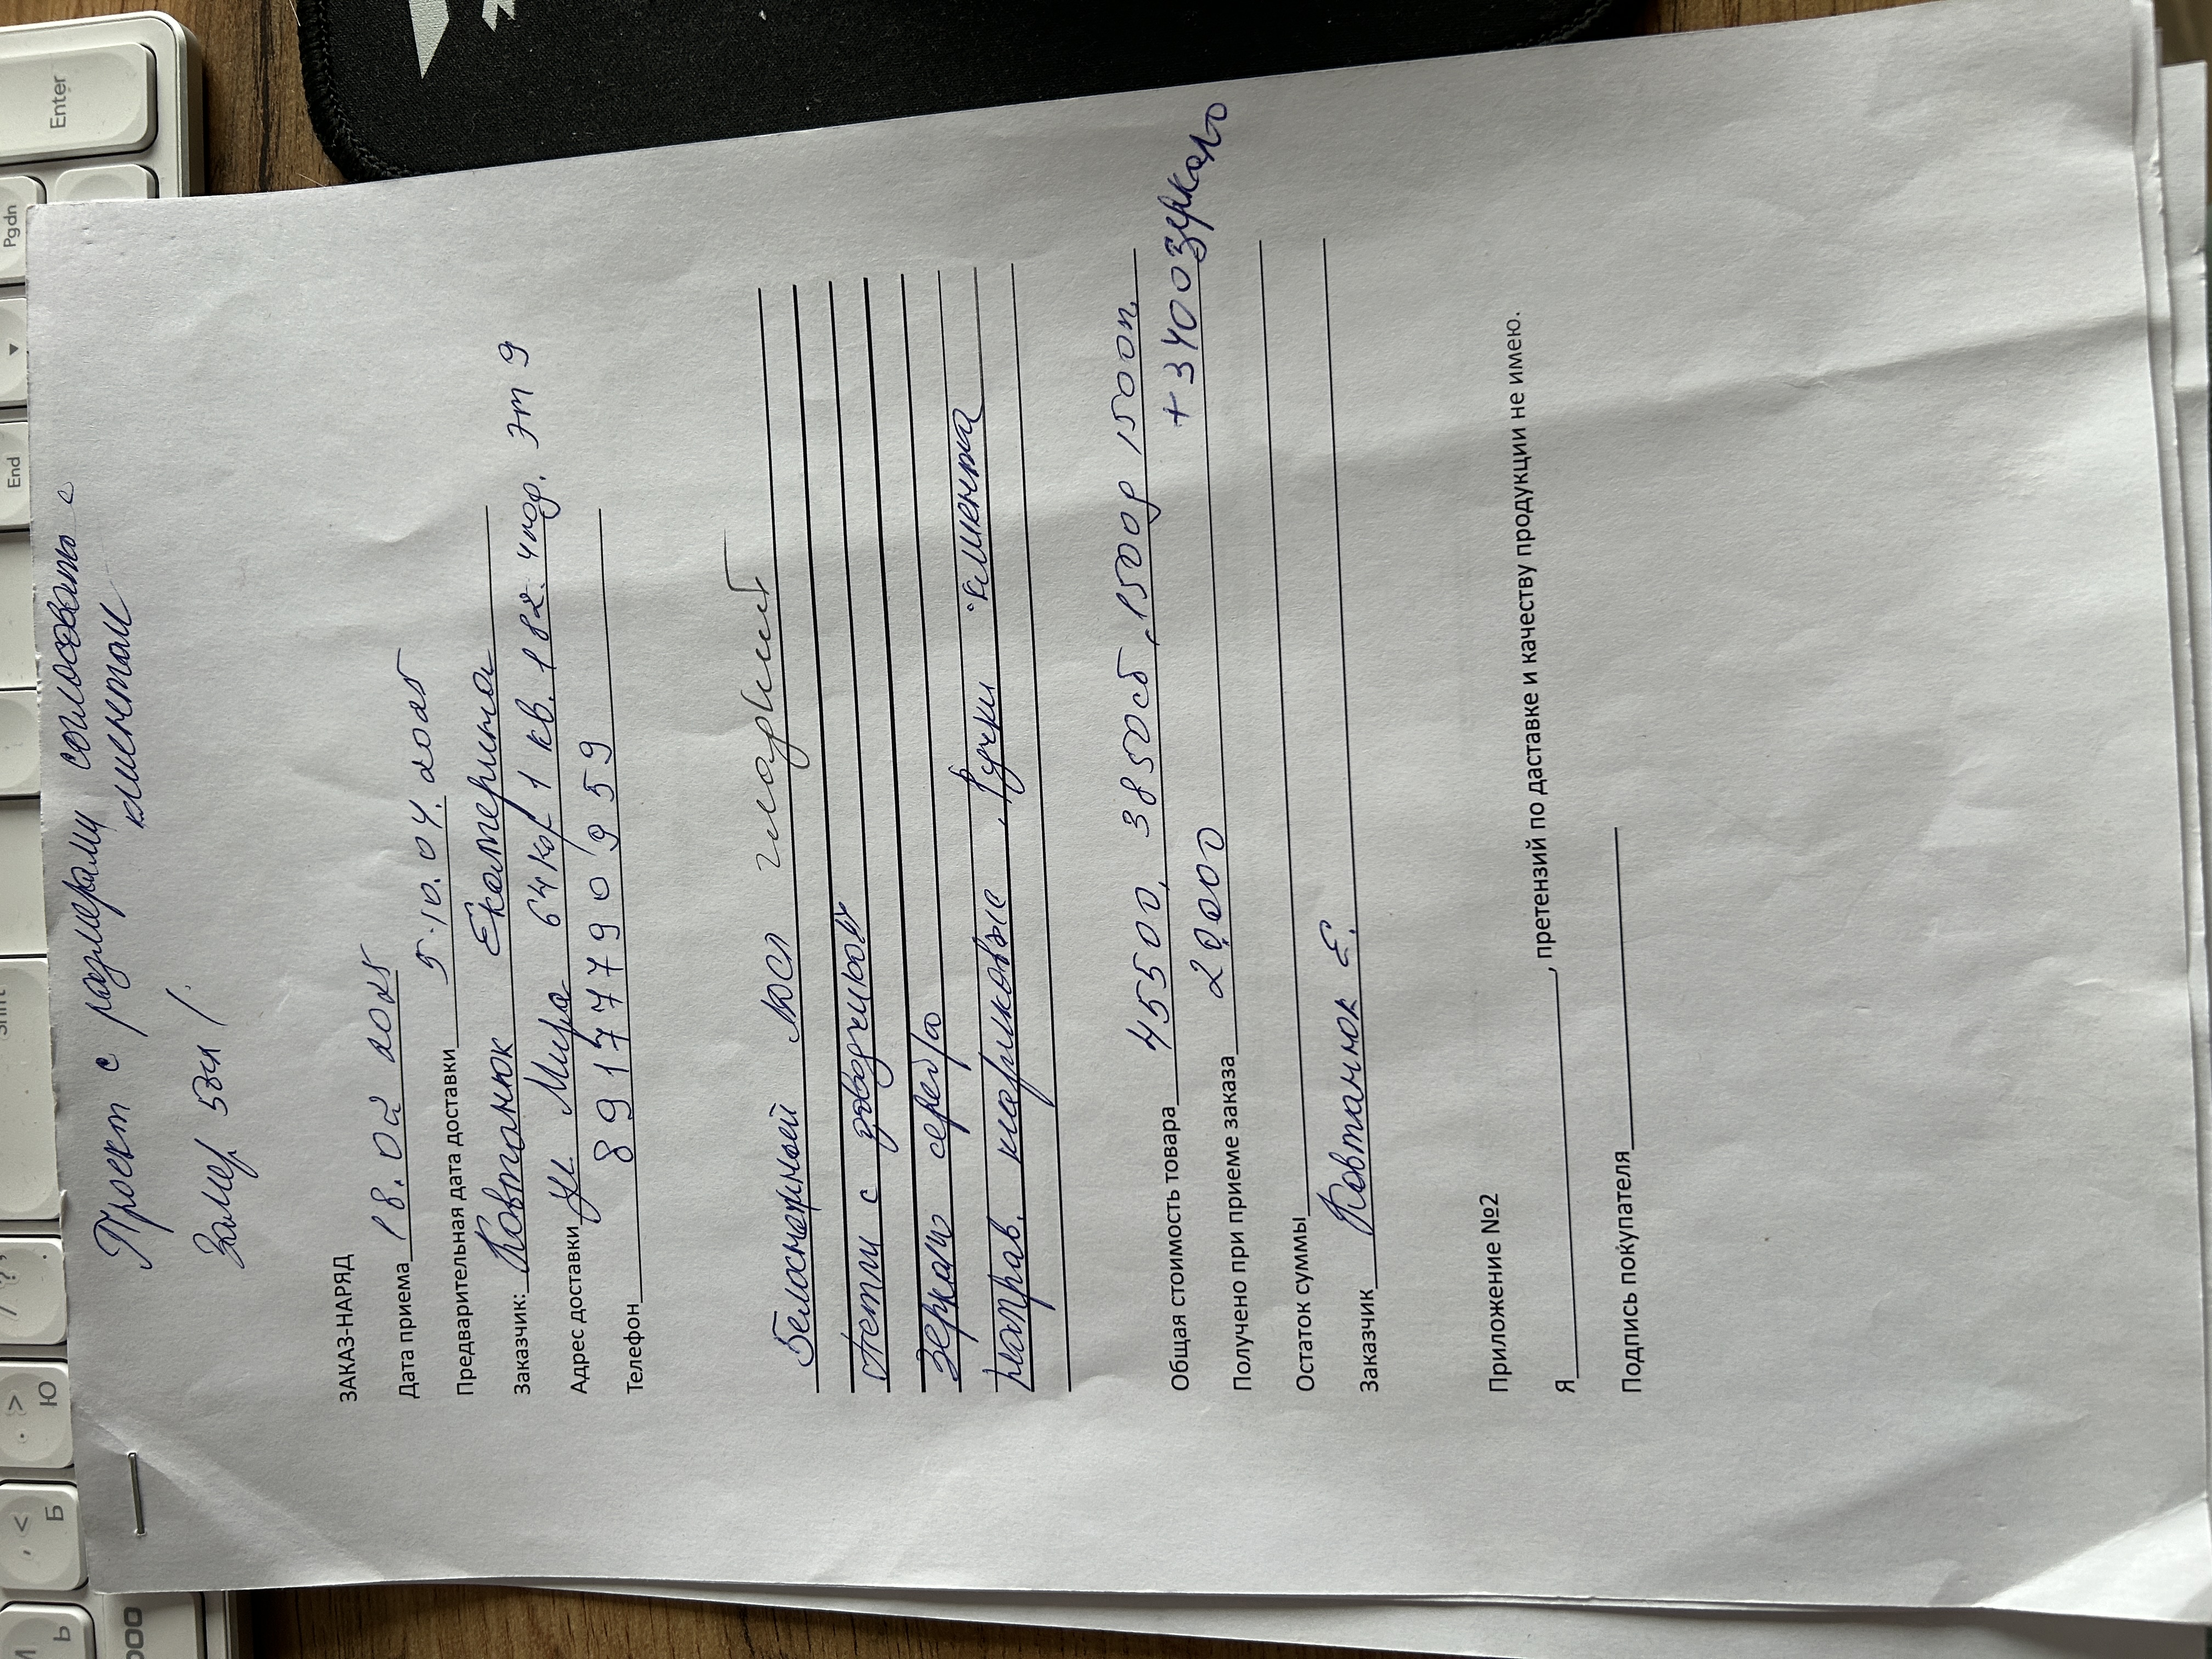 Shift
Ь
< , Б
> . Ю
/ ? ,
End
Pgdn
Enter
000
Проект с размерами согласовать с
клиентом
Замер
ЗАКАЗ-НАРЯД
Дата приема 18.02 2025
Предварительная дата доставки 5-10.04.2025
Заказчик: Ковтанюк Екатерина
Адрес доставки ул. Мира 64 кор 1 кв. 182. 4 под. эт 9
Телефон 89177790959
Белоснежный гладкий
Петли с доводчиком
Зеркало серебро
Направ. шариковые, Ручки клиента
Общая стоимость товара 45500, 3850сб, 1500д 1500п.
+ 3400 зеркало
Получено при приеме заказа 20.000
Остаток суммы
Заказчик Ковтанюк Е.
Приложение №2
Я , претензий по даставке и качеству продукции не имею.
Подпись покупателя